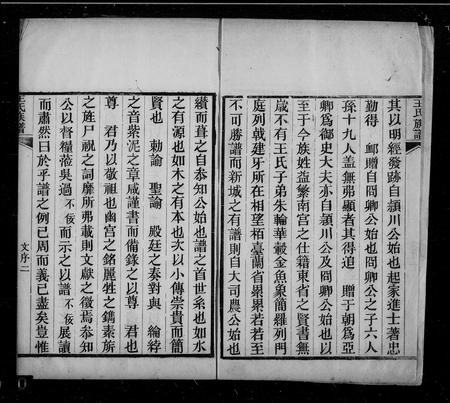 王氏族譜
其以明經發跡自潁川公始也起家進士著忠
勤得 卹贈自冏卿公始也冏卿公之子六人
孫十九人蓋無弗顯者其得追 贈于朝爲亞
卿爲御史大夫亦自潁川公及冏卿公始也以
至于今族姓益繁南宮之仕籍東省之賢書無
歲不有王氏子弟朱輪華轂金魚象簡羅列門
庭列戟建牙所在相望栢臺蘭省纍纍若若至
不可勝譜而新城之有譜則自大司農公始也
續而葺之自叅知公始也譜之首世系也如水
之有源也如木之有本也次以小傳崇貴而簡
賢也 勅諭 聖諭 殿廷之奏對與 綸綍
之音紫泥之章咸謹書而備錄之以尊 君也
尊 君乃以敬祖也幽宮之銘麗牲之鐫素旂
之旌尸祝之詞靡所弗載則文獻之徵焉叅知
公以督糧蒞吳過不佞而示之以譜不佞展讀
而肅然曰於乎譜之例已周而義已盡矣豈惟
王氏族譜 文序 二